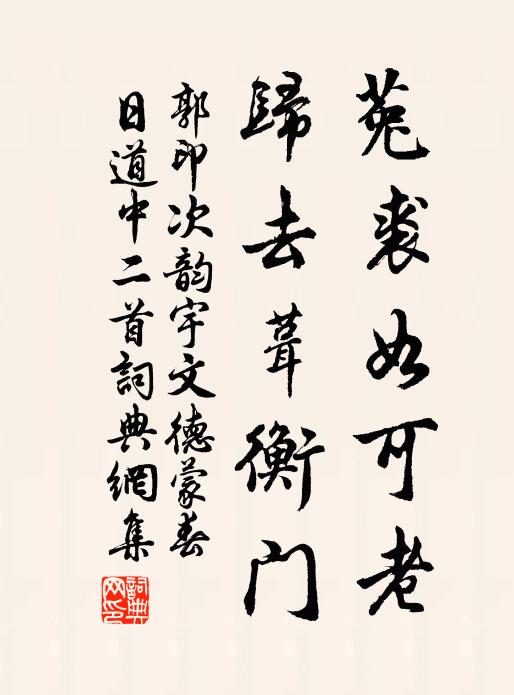 菟裘如可老
歸去葺衡門
郭印次韵宇文德蒙春
日道中二首詞典網集